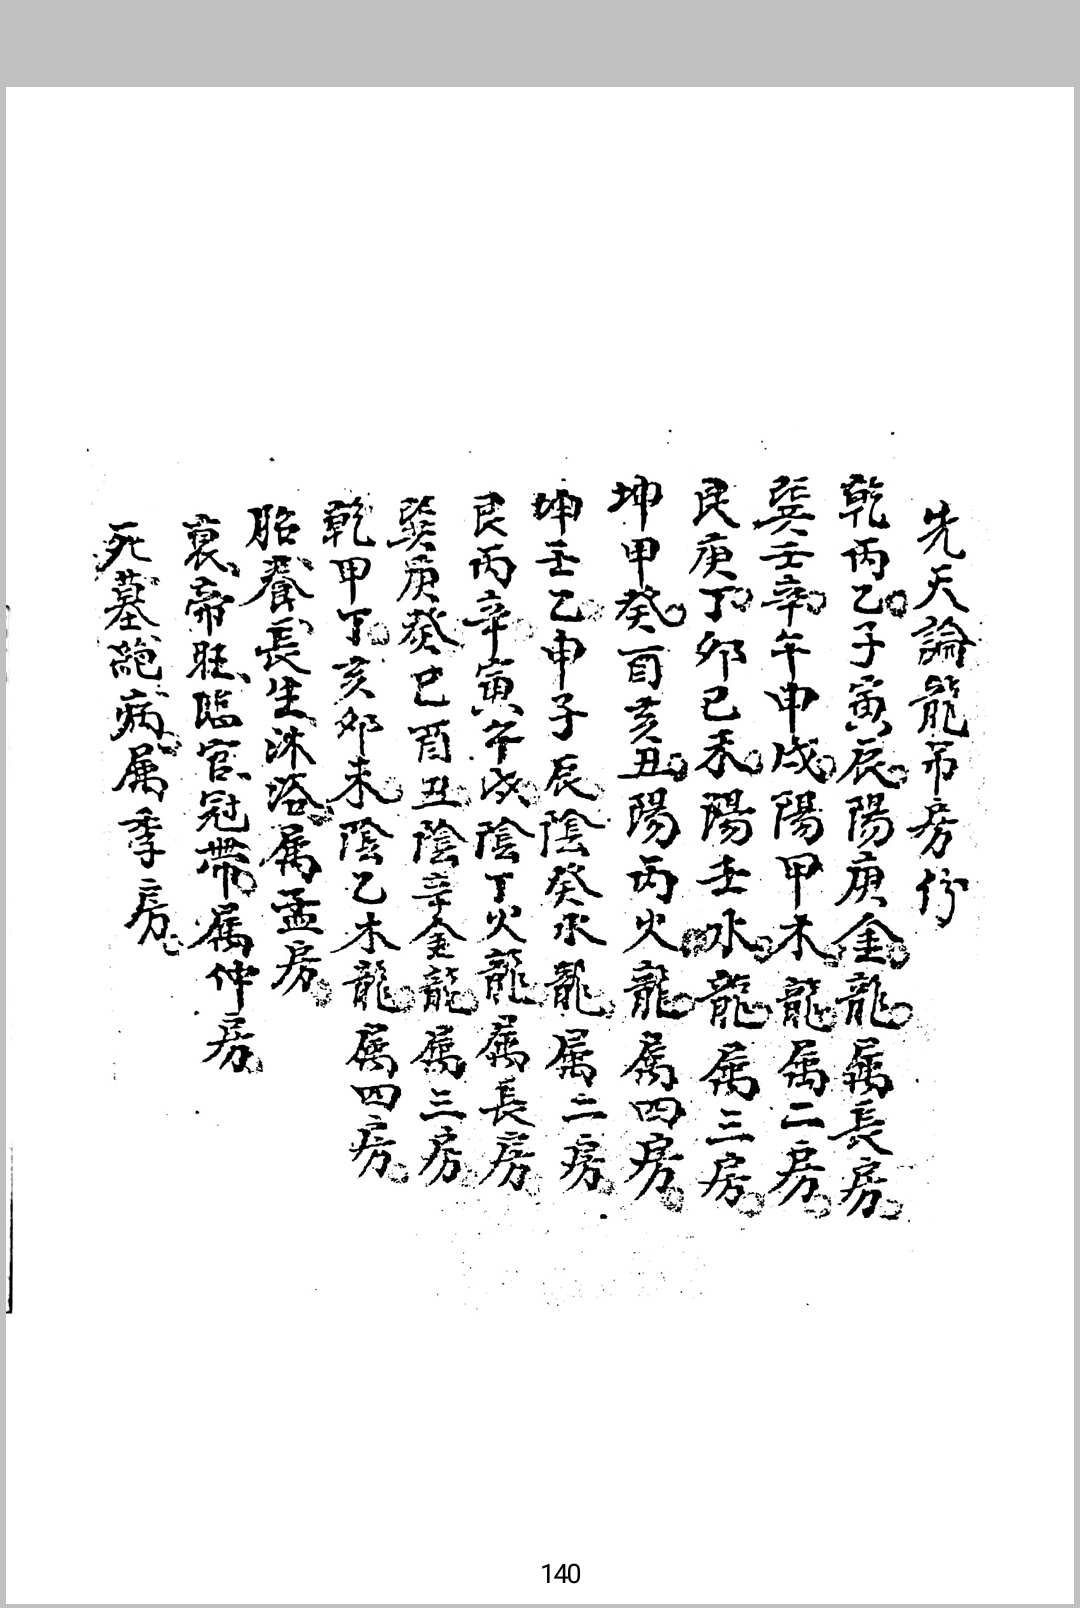 先天論龍吊房份
乾丙乙子寅辰陽庚金龍属長房
巽壬辛午申戌陽甲木龍属二房
艮庚丁卯巳未陽壬水龍属三房
坤甲癸酉亥丑陽丙火龍属四房
坤壬乙申子辰陰癸水龍属二房
艮丙辛寅午戌陰丁火龍属長房
巽庚癸巳酉丑陰辛金龍属三房
乾甲丁亥卯未陰乙木龍属四房
胎養長生沐浴属孟房
衰帝旺臨官冠帶属仲房
死墓絕病属季房
140